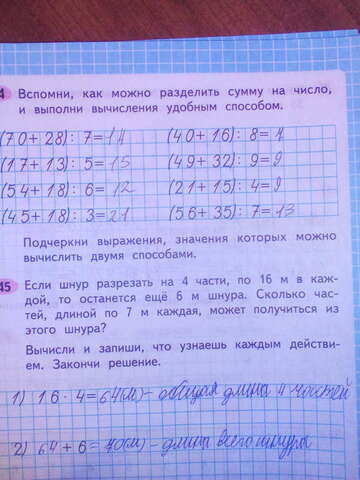 4 Вспомни, как можно разделить сумму на число,
и выполни вычисления удобным способом.
(70+28): 7=14 (40+16): 8=7
(17+13): 5=15 (49+32): 9=9
(54+18): 6=12 (21+15): 4=9
(45+18): 3=21 (56+35): 7=13
Подчеркни выражения, значения которых можно
вычислить двумя способами.
45 Если шнур разрезать на 4 части, по 16 м в каж-
дой, то останется ещё 6 м шнура. Сколько час-
тей, длиной по 7 м каждая, может получиться из
этого шнура?
Вычисли и запиши, что узнаешь каждым действи-
ем. Закончи решение.
1) 16 · 4=64(м)- общая длина 4 частей
2) 64+6=70(м)- длина всего шнура